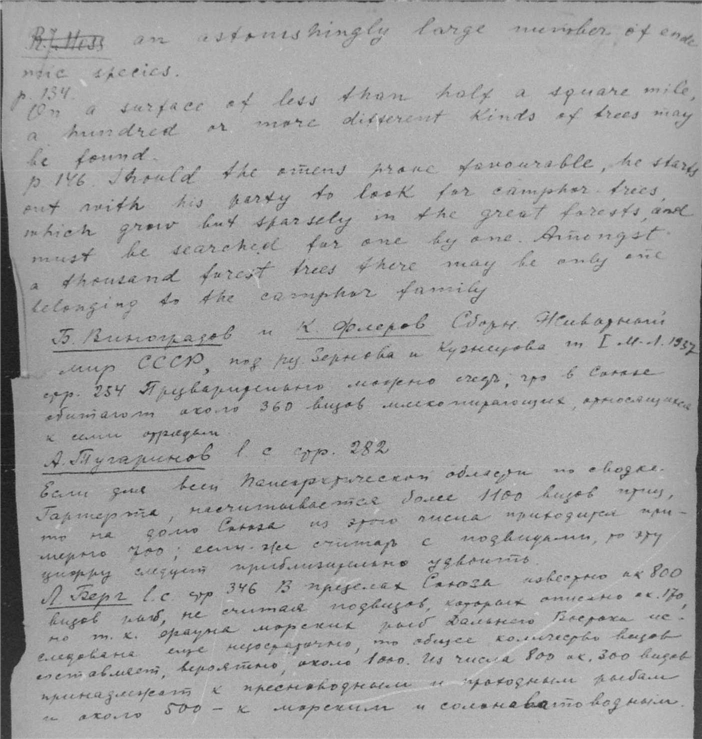 R.J. Hess an astonishingly large number of ende
mic species.
p. 134.
On a surface of less than half a square mile,
a hundred or more different kinds of trees may
be found.
p. 146. Should the omens prove favourable, he starts
out with his party to look for camphor trees,
which grow but sparsely in the great forests, and
must be searched for one by one. Amongst
a thousand forest trees there may be only one
belonging to the camphor family
Б. Виноградов и К. Флеров Сборн. Животный
мир СССР, под ред Зернова и Кузнецова т I М.-Л. 1937
стр. 254 Предварительно можно счесть, что в Союзе
обитают около 360 видов млекопитающих, относящихся
к семи отрядам.
А. Тугаринов l. c. стр. 282
Если для всей Палеарктической области по сводке
Гартерта, насчитывается более 1100 видов птиц,
то на долю Союза из этого числа приходится при-
мерно 700; если же считать с подвидами, то эту
цифру следует приблизительно удвоить.
Л. Берг l. c. стр 346 В пределах Союза известно ок 800
видов рыб, не считая подвидов, которых описано ок. 170,
но т. к. фауна морских рыб Дальнего Востока ис-
следована еще недостаточно, то общее количество видов
составляет, вероятно, около 1000. Из числа 800 ок. 300 видов
принадлежат к пресноводным и проходным рыбам
и около 500 - к морским и солоноватоводным.